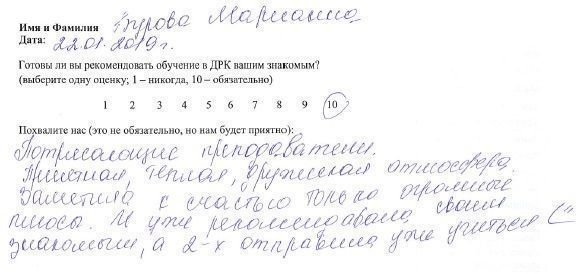 Имя и Фамилия Бурова Марианна
Дата: 22.01.2019 г.
Готовы ли вы рекомендовать обучение в ДРК вашим знакомым?
(выберите одну оценку; 1 – никогда, 10 – обязательно)
1 2 3 4 5 6 7 8 9 10
Похвалите нас (это не обязательно, но нам будет приятно):
Потрясающие преподаватели.
Приятная, теплая, дружеская атмосфера.
Заметила к счастью только огромные
плюсы. И уже рекомендовала своим
знакомым, а 2-х отправила уже учиться ("